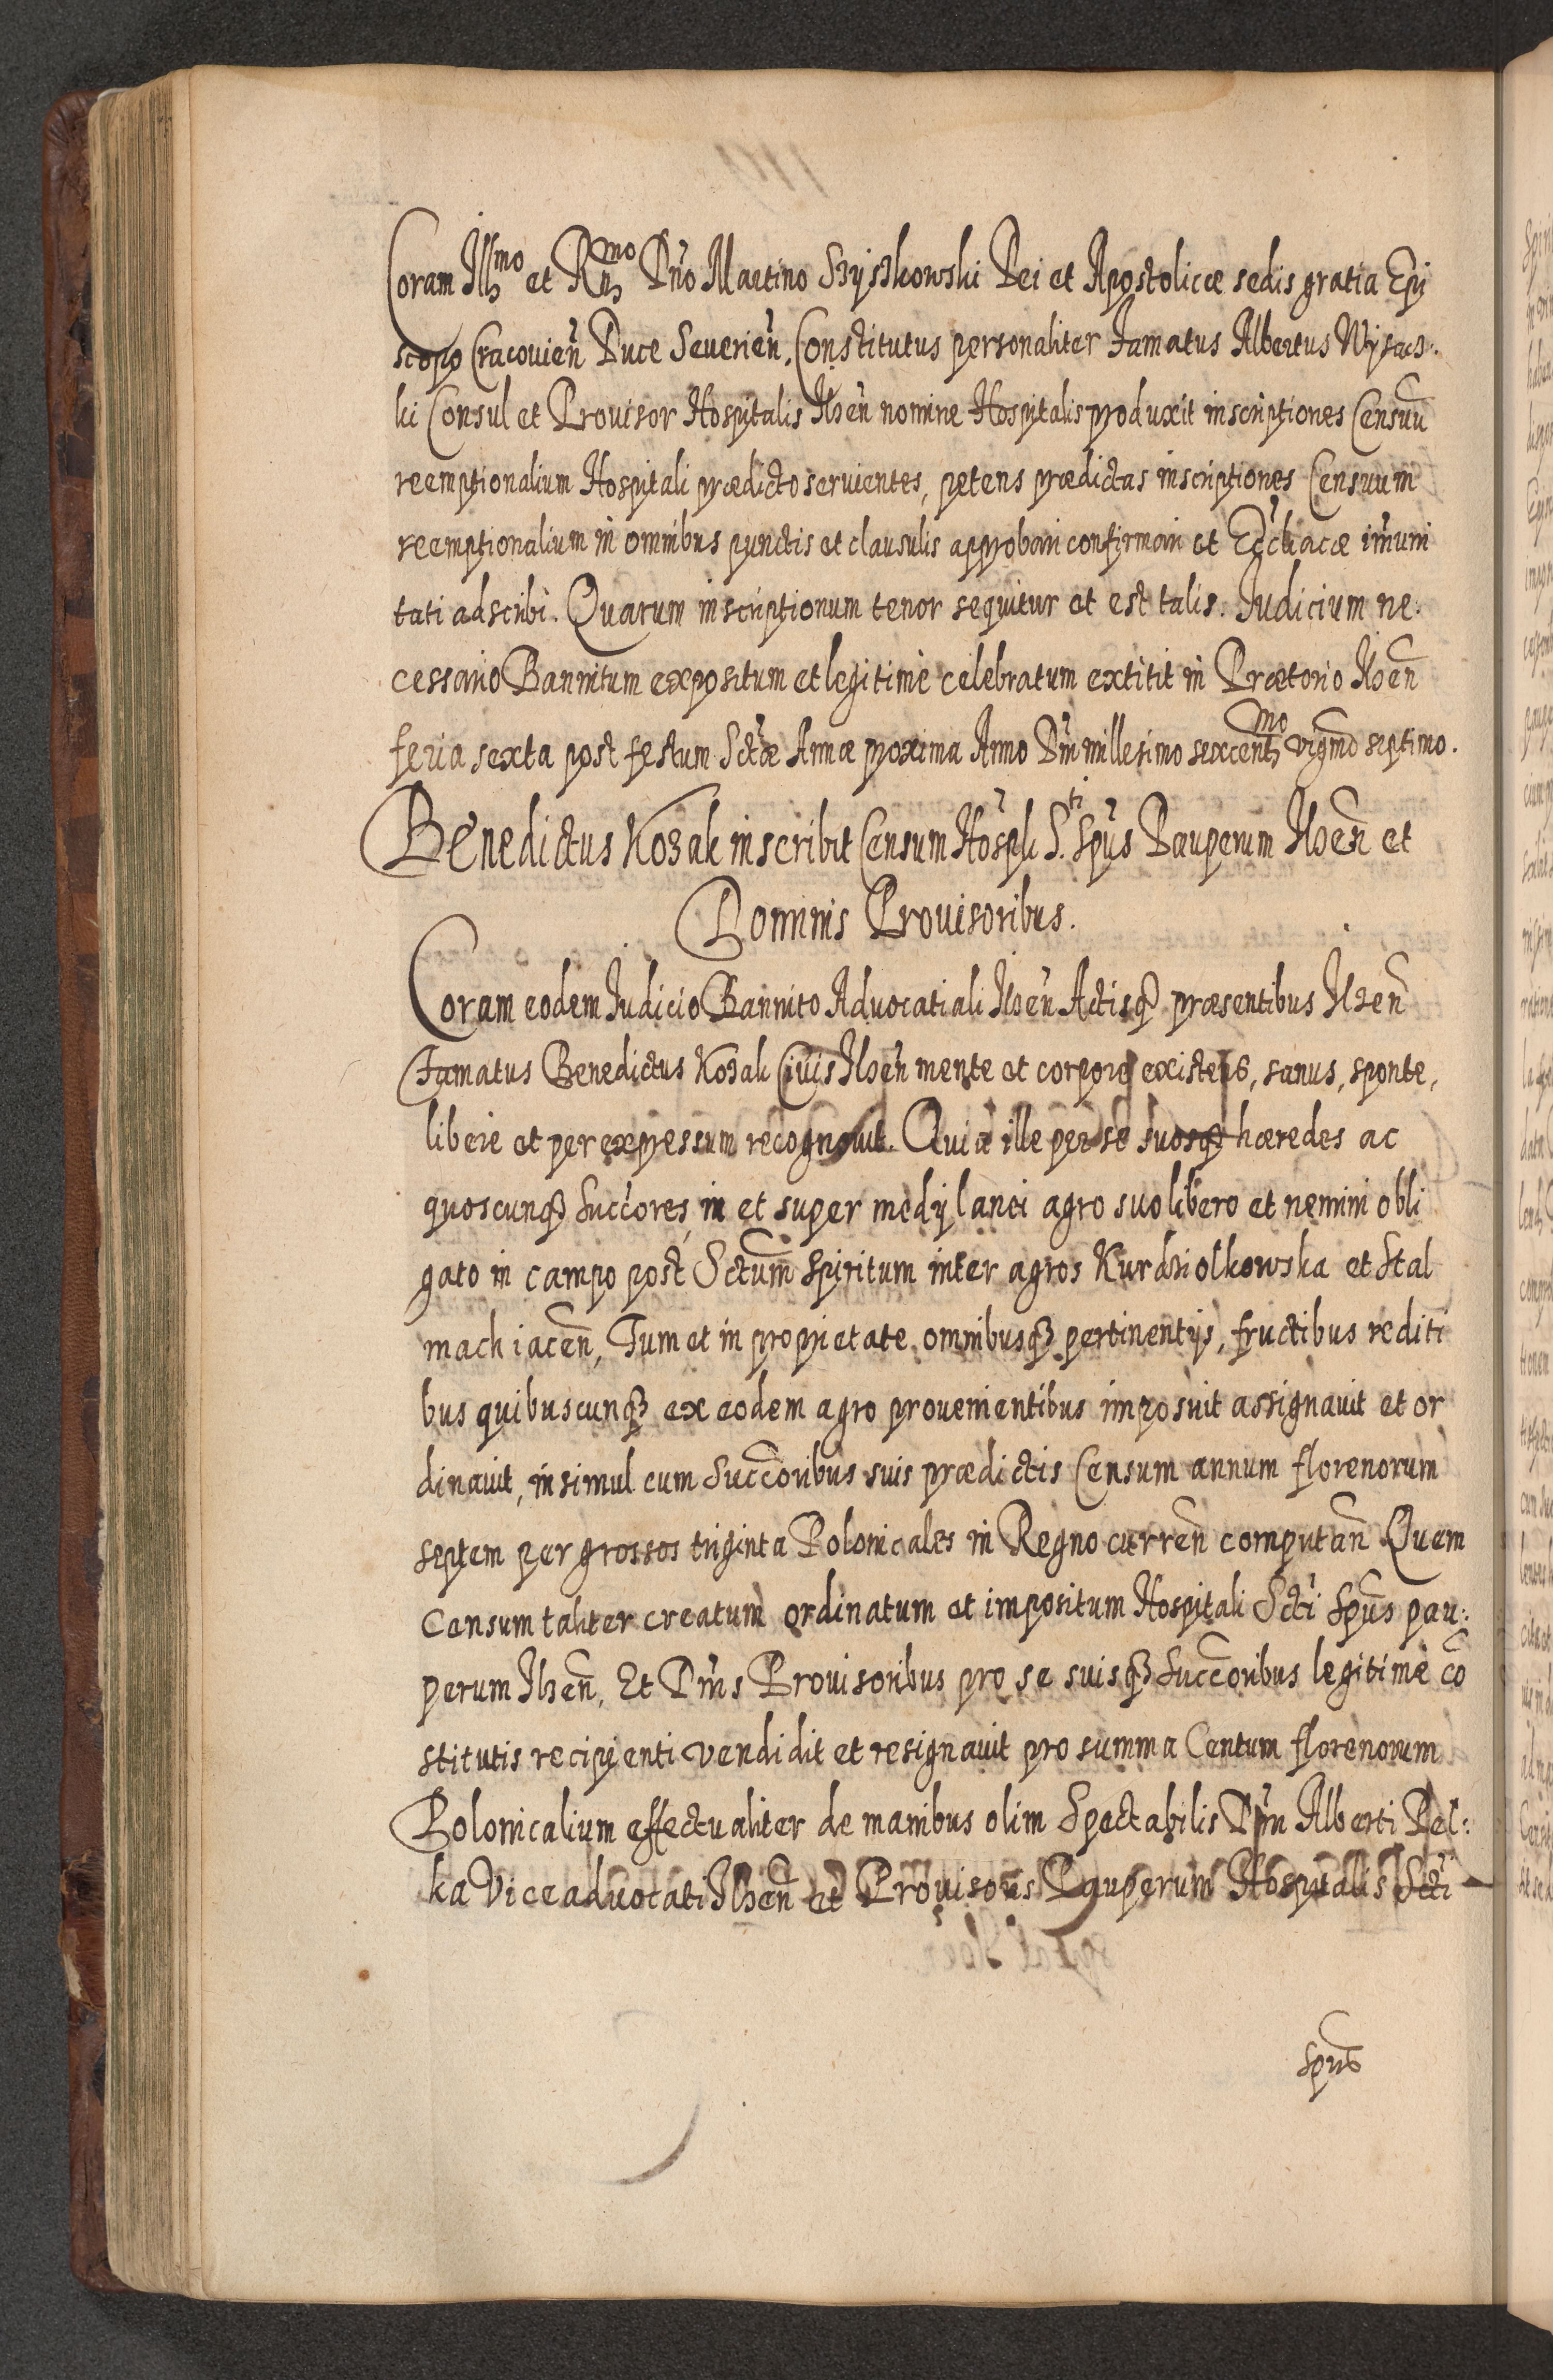 Coram Illmo et Rndmo Dno Martino Szyszkowski Dei et Apostolicæ sedis gratia Epi
scopo Cracouien̄ Duce Seuerien̄. Constitutus personaliter Famatus Albertus Wysocz:
ki Consul et Prouisor Hospitalis Ilzen̄ nomine Hospitalis produxit inscriptiones Censuū
reemptionalium Hospitali prædicto seruientes, petens prædictas inscriptiones Censuum
reemptionalium in omnibus punctis et clausulis approbari confirmari et Eccl̄iacæ im̄uni
tati adscribi. Quarum inscriptionum tenor sequitur et est talis. Iudicium ne:
cessario Bannitum expositum et legitimè celebratum extitit in Prætorio Ilzen̄
feria sexta post festum Sctæ Annæ proxima Anno Dn̄i millesimo sexcentmo vigmo septimo.
Benedictus Kozak inscribit Censum Hospli S.ti Spūs Pauperum Ilzen̄ et
Dominis Prouisoribus.
Coram eodem Iudicio Bannito Aduocatiali Ilzen̄ Actisq̄ præsentibus Ilzen̄
Famatus Benedictus Kozak Ciuis Ilzen̄ mente et corpore existens, sanus, sponte,
libere et per expressum recognouit. Quia ille per se suosq̄ hæredes ac
quoscunq̄ Succ̄ores, in et super medij lanei agro suo libero et nemini obli
gato in campo post Sctum Spiritum inter agros Kurdziolkowska et Stal
mach iacen̄, Tum et in proprietate omnibusq̄ pertinentijs, fructibus rediti
bus quibuscunq̄ ex eodem agro prouenientibus imposuit assignauit et or
dinauit, insimul cum Succ̄oribus suis prædictis Censum annum florenorum
septem per grossos triginta Polonicales in Regno curren̄ computan̄ Quem
Censum taliter creatum ordinatum et impositum Hospitali Scti Spūs pau:
perum Ilzen̄, Et Dn̄is Prouisoribus pro se suisq̄ Succ̄oribus legitimè cō
stitutis recipienti vendidit et resignauit pro summa Centum florenorum
Polonicalium effectualiter de manibus olim Spectabilis Dn̄i Alberti Pel:
ka Viceaduocati Ilzen̄ et Prouisoris Pauperum Hospitalis Scti
Spūs